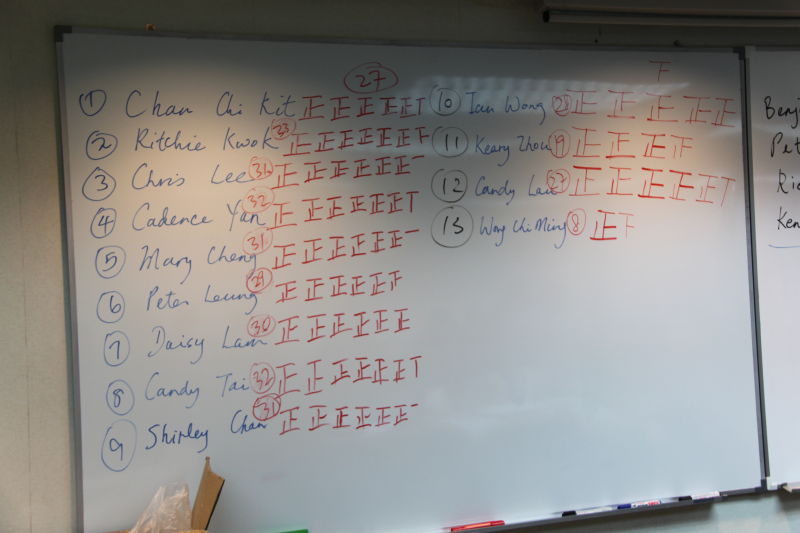 27
① Chan Chi Kit 正正正正正T
② Ritchie Kwok 33 正正正正正正下
③ Chris Lee 31 正正正正正正一
④ Cadence Yan 32 正正正正正正T
⑤ Mary Cheng 31 正正正正正正一
⑥ Peter Leung 29 正正正正正
⑦ Daisy Lam 30 正正正正正正
⑧ Candy Tai 32 正正正正正正T
⑨ Shirley Chan 31 正正正正正正一
下
⑩ Ian Wong 28 正正正正正
⑪ Keary Zhou 19 正正正
⑫ Candy Lau 27 正正正正正T
⑬ Wong Chi Ming 8 正下
Benj
Pet
Ric
Ken